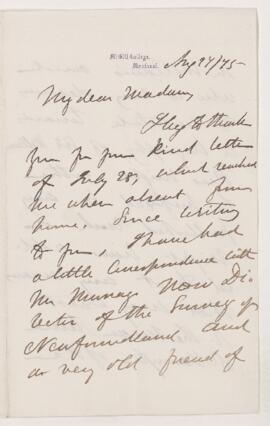 McGill College,
Montreal.
Aug 27/75
My dear Madam,
I beg to thank
you for your kind letter
of July 28, which reached
me when absent from
home. Since writing
to you, I have had
a little correspondence with
Mr Murray Now Di-
rector of the Survey of
Newfoundland and
a very old friend of